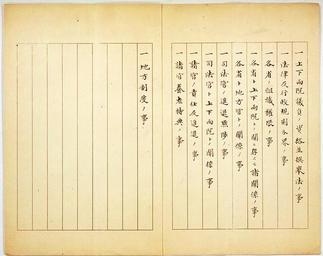 一 上下両院議員ノ資格並撰挙法ノ事
一 法律及行政規則分界ノ事
一 各省ノ組織権限ノ事
一 各省ト上下両院トノ関係ノ事
一 各省ト地方官トノ関係ノ事
一 司法官ノ進退黜陟ノ事
一 司法官ト上下両院トノ関係ノ事
一 諸官ノ責任及進退ノ事
一 諸官養老特典ノ事
一 地方制度ノ事